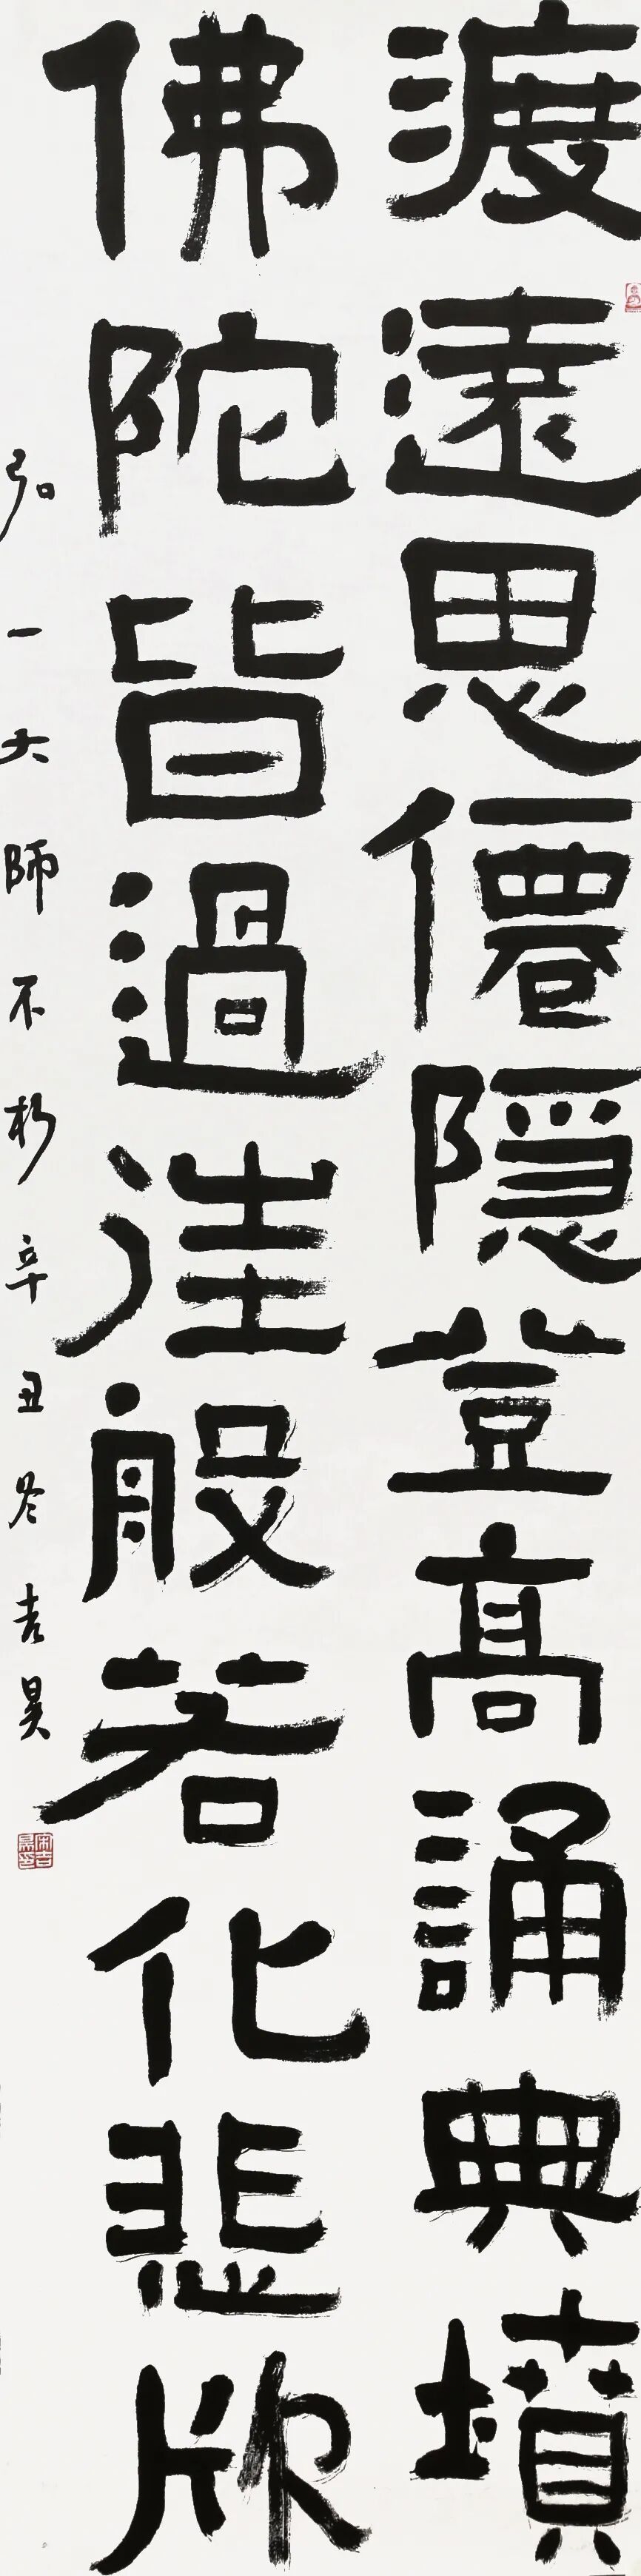 渡遠思僊隱登高誦典墳
佛陀皆過往般若化悲欣
弘一大師不朽辛丑冬吉昊